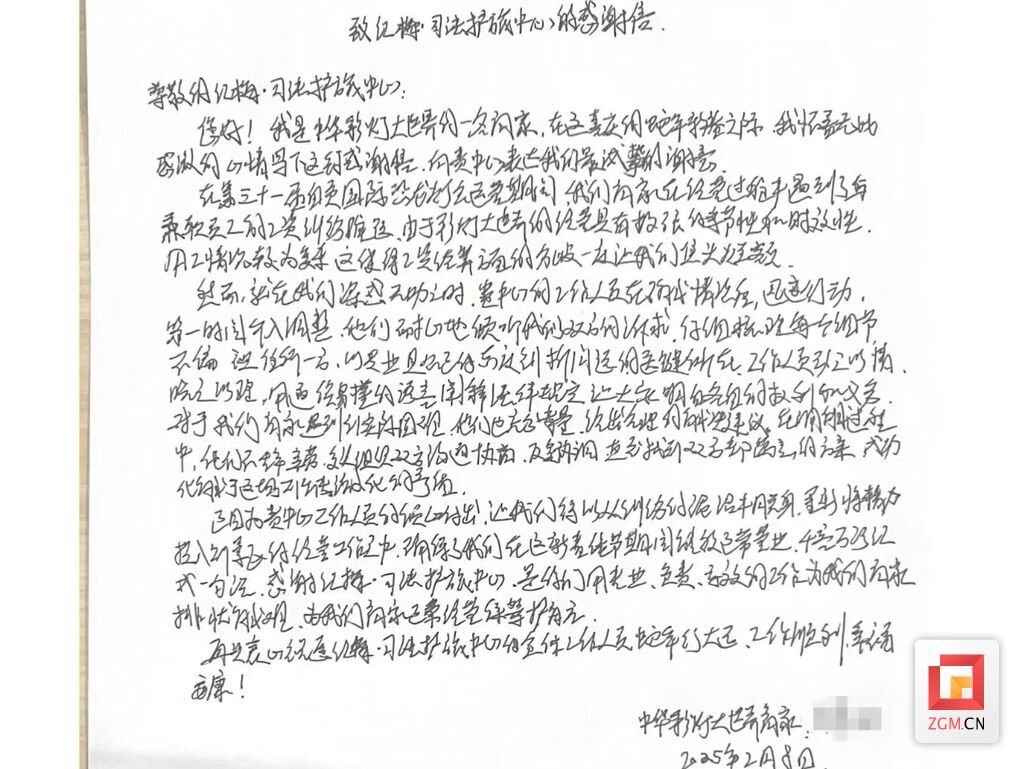 致红梅·司法护旅中心的感谢信.
尊敬的红梅·司法护旅中心:
您好! 我是中华彩灯大世界的一名商家, 在这喜庆的蛇年新春之际, 我怀着无比
感激的心情写下这封感谢信, 向贵中心表达我们最诚挚的谢意.
在第三十一届自贡国际恐龙灯会运营期间, 我们商家在经营过程中遇到了与
兼职员工的工资纠纷难题, 由于彩灯大世界的经营具有较强的季节性和时效性,
用工情况较为复杂, 这使得工资结算方面的分歧一度让我们焦头烂额.
然而, 就在我们深感无助之时, 贵中心的工作人员在得知情况后, 迅速行动,
第一时间介入调整. 他们耐心地倾听我们双方的诉求, 仔细梳理每个细节
不偏袒任何一方, 以专业且公正的态度剖析问题的关键所在. 工作人员动之以情,
晓之以理, 用通俗易懂的语言阐释法律规定, 让大家明白各自的权利和义务.
对于我们商家遇到的实际困难, 他们也充分考量, 给出合理的解决建议. 在调解过程
中, 他们不辞辛劳, 多次组织双方沟通协商, 反复协调, 直至找到双方都满意的方案, 成功
化解了这场可能激化的矛盾.
正因为贵中心工作人员的倾心付出, 让我们得以从纠纷的泥沼中脱身, 重新将精力
投入到季节的经营工作中, 确保了我们在这新春佳节期间能够正常营业. 千言万语汇
成一句话, 感谢红梅·司法护旅中心, 是你们用专业、负责、高效的工作为我们商家
排忧解难, 为我们商家正常经营保驾护航.
再次衷心祝愿红梅·司法护旅中心的全体工作人员蛇年行大运、工作顺利、幸福
安康!
中华彩灯大世界商家:
2025年2月8日
ZGM.CN